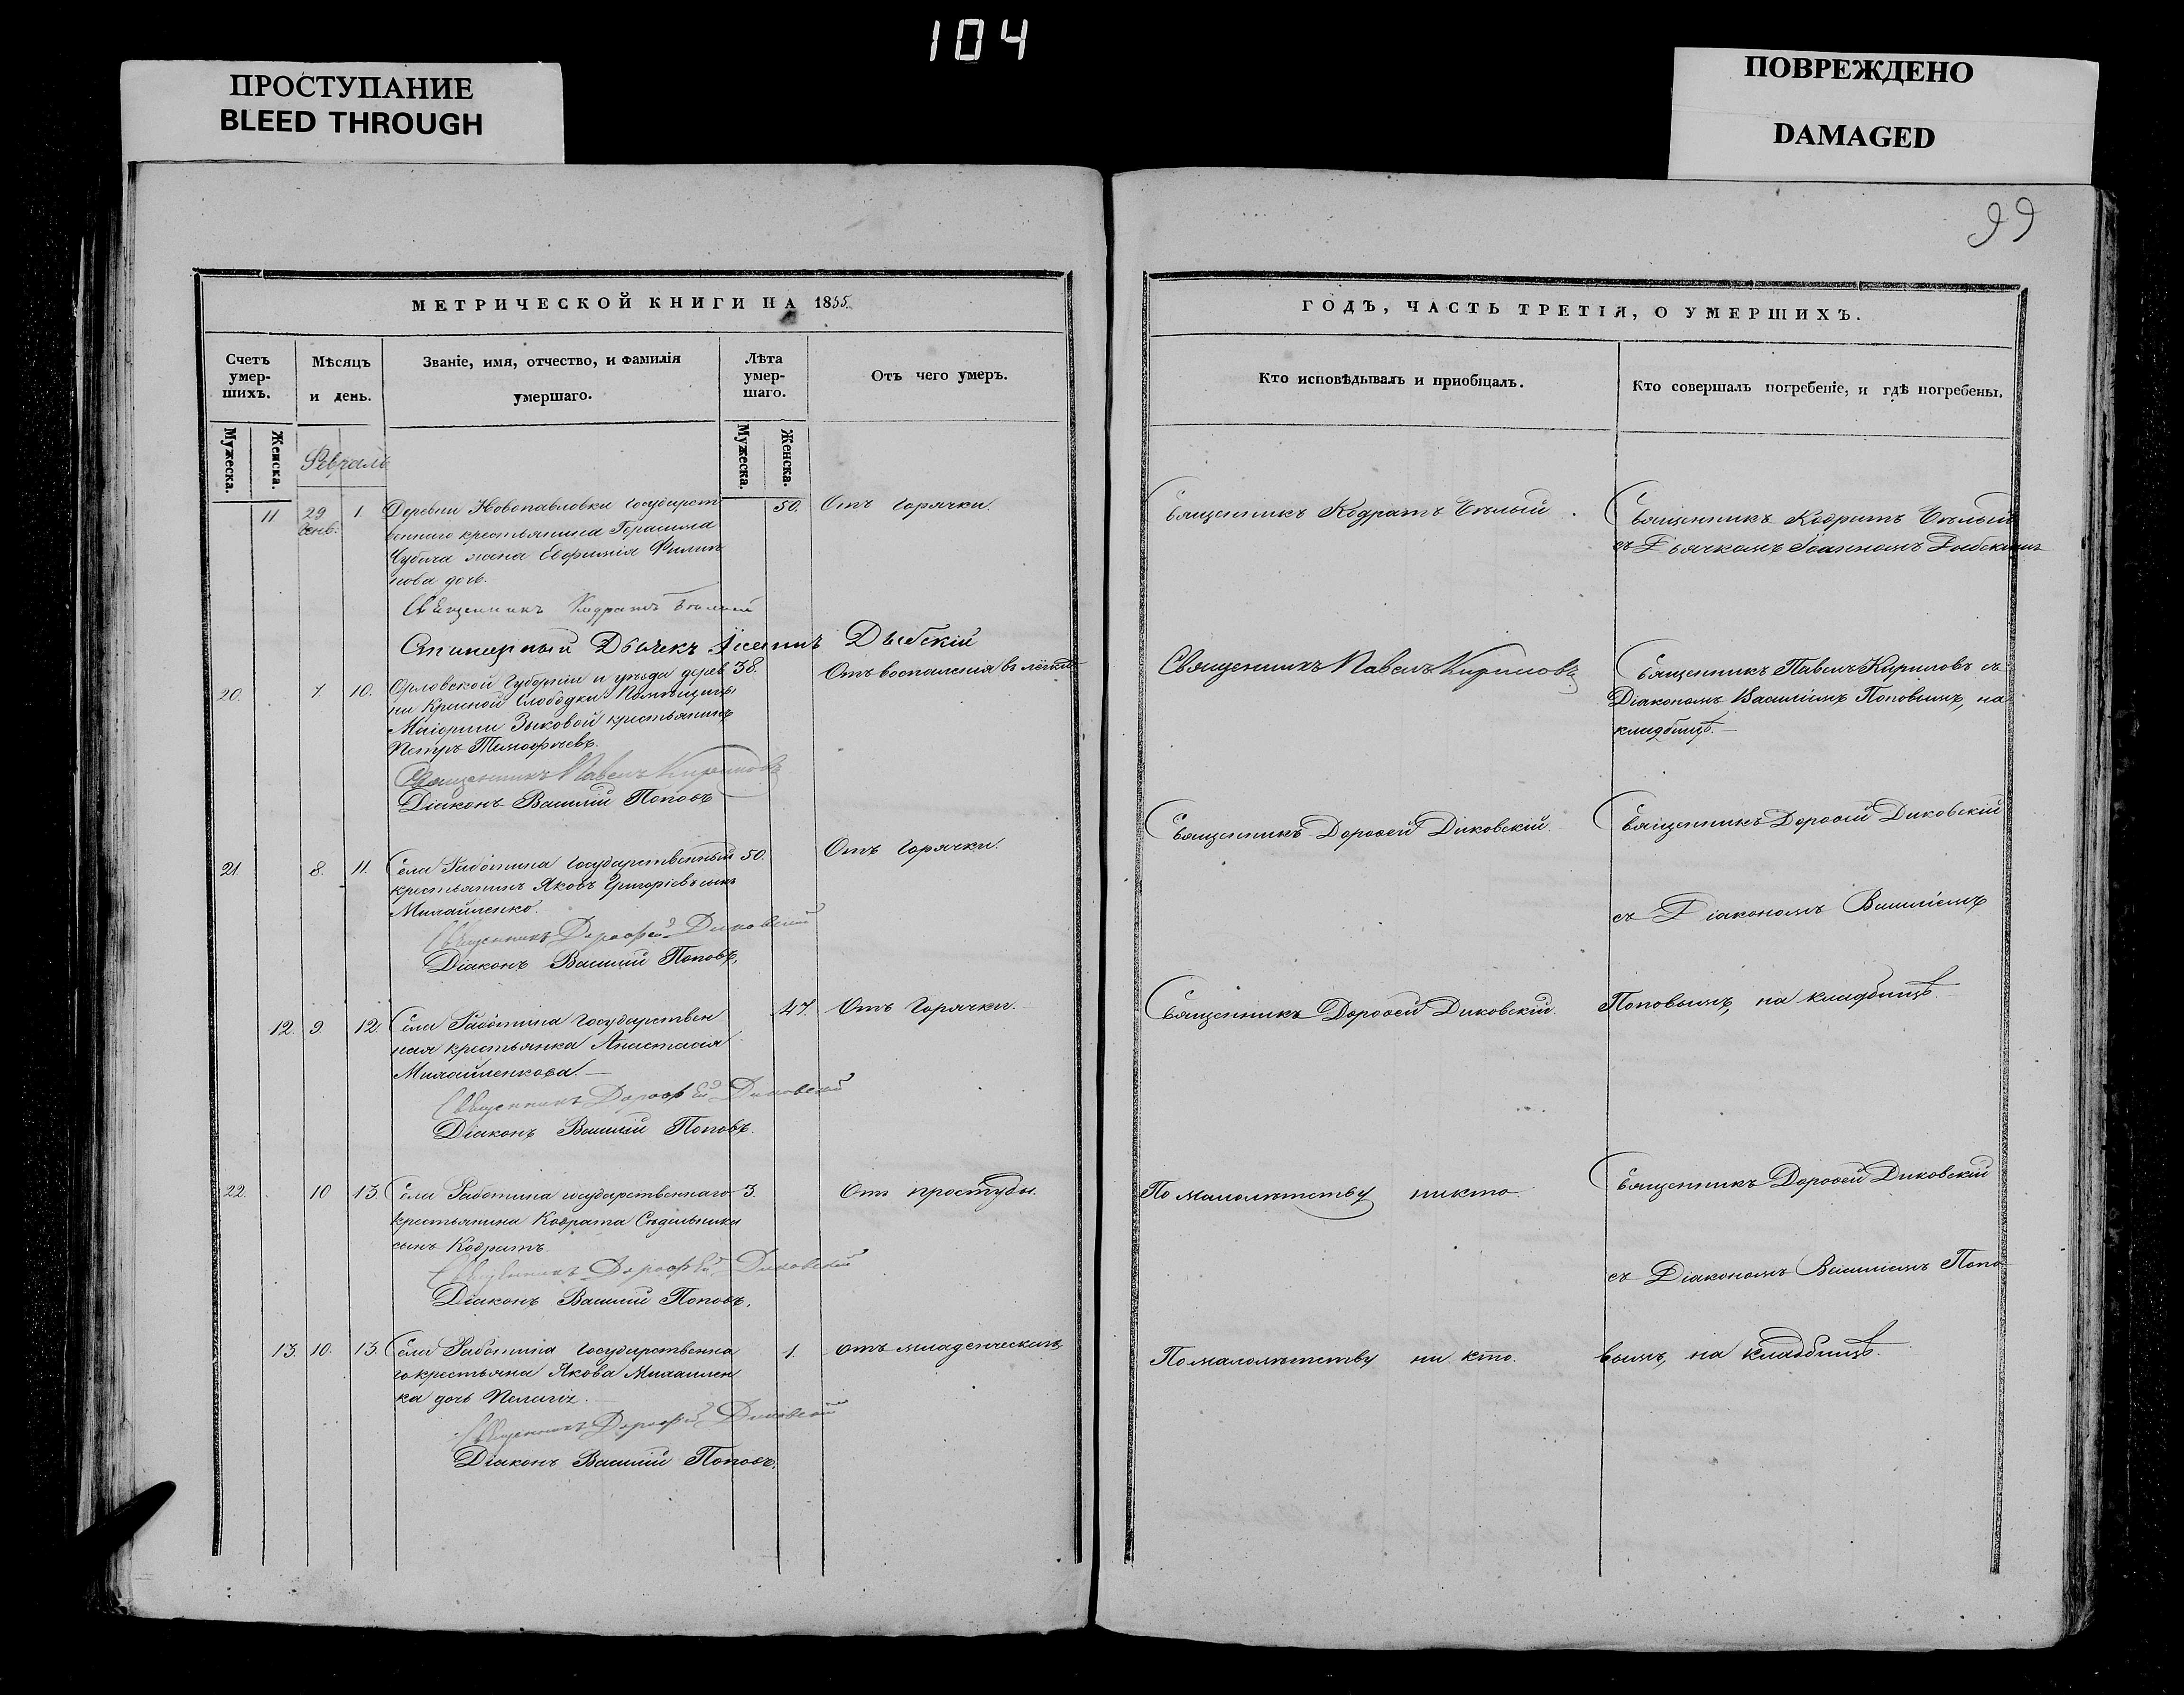 104
ПРОСТУПАНИЕ
BLEED THROUGH
ПОВРЕЖДЕНО
DAMAGED
99
МЕТРИЧЕСКОЙ КНИГИ НА 1855
Счетъ умер-шихъ.
Мѣсяцъ и день.
Званіе, имя, отчество, и фамилія умершаго.
Лѣта умер-шаго.
Отъ чего умеръ.
Мужеска.
Женска.
Мужеска.
Женска.
Февраль
11 29 Генв. 1. Деревни Новопавловки государст 50. Отъ горячки.
веннаго крестьянина Герасима
жена Евфимія Филип
пова дочь.
Священникъ Кодратъ Бѣлый
Дьячекъ Дыбскій
20. 7 10. Орловской Губерніи и уѣзда дерев 38. Отъ воспаленія въ лёгкихъ
ни Красной Слободки Помѣщицы
Маіорши Зыковой крестьянинъ
Петръ Тимофѣевъ.
Священникъ Павелъ Кириловъ
Діаконъ Василій Поповъ
21. 8. 11. Села Работина Государственный 50. Отъ Горячки.
крестьянинъ Яковъ Григоріевъ сынъ
Михайленко.
Священникъ Дорофей Диковскій
Діаконъ Василій Поповъ,
12. 9 12. Села Работина Государствен 47. Отъ Горячки.
ная крестьянка Анастасія
Михайленкова.
Священникъ Дорофѣй Диковскій
Діаконъ Василій Поповъ.
22. 10 13. Села Работина государственнаго 3. Отъ простуды.
крестьянина Кодрата Сѣдельника
сынъ Кодратъ
Священникъ Дорофѣй Диковскій
Діаконъ Василій Поповъ.
13. 10. 13. Села Работина Государственна 1. отъ младенческихъ
го крестьяна Якова Михаилен
ка дочь Пелагіа.
Священникъ Дорофѣй Диковскій
Діаконъ Василій Поповъ.
ГОДЪ, ЧАСТЬ ТРЕТІЯ, О УМЕРШИХЪ.
Кто исповѣдывалъ и пріобщалъ.
Кто совершалъ погребеніе, и гдѣ погребены.
Священникъ Кодратъ Бѣлый.
Священникъ Кодратъ Бѣлый
съ Дьячкомъ Іоанномъ Дыбскимъ
Священникъ Павелъ Кириловъ
Священникъ Павелъ Кириловъ съ
Діакономъ Василіемъ Поповымъ, на
кладбищѣ.
Священникъ Дороѳей Диковскій.
Священникъ Дороѳей Диковскій
съ Діакономъ Василіемъ
Священникъ Дороѳей Диковскій.
Поповымъ, на кладбищѣ.
По малолѣтству никто.
Священникъ Дороѳей Диковскій
съ Діакономъ Василіемъ Попо
По малолѣтству ни кто.
вымъ, на кладбищѣ.